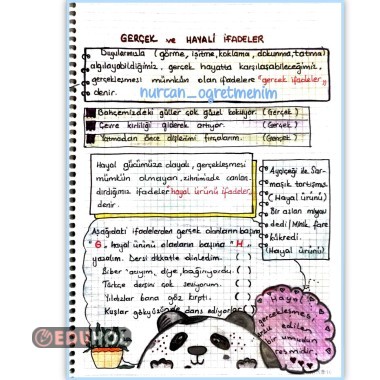 GERÇEK ve HAYALİ İFADELER
Duyularımızla (görme, işitme, koklama, dokunma, tatma)
algılayabildiğimiz, gerçek hayatta karşılaşabileceğimiz,
gerçekleşmesi mümkün olan ifadelere "gerçek ifadeler"
denir.
nurcan_ogretmenim
Bahçemizdeki güller çok güzel kokuyor. (Gerçek)
Çevre kirliliği giderek artıyor. (Gerçek)
Yatmadan önce dişlerimi fırçalarım. (Gerçek)
Hayal gücümüze dayalı, gerçekleşmesi
mümkün olmayan, zihnimizde canlan
dırdığımız ifadeler hayal ürünü ifadeler
denir.
Ayçiçeği ile Sar-
maşık tartışmış.
(Hayal ürünü)
Bir aslan miyav
dedi / Minik fare
kükredi.
(Hayal ürünü)
Aşağıdaki ifadelerden gerçek olanların başına
"G", hayal ürünü olanların başına "H"
yazalım. Dersi dikkatle dinledim. ( )
Biber "acıyım, diye, bağırıyordu. ( )
Türkçe dersini çok seviyorum. ( )
Yıldızlar bana göz kırptı. ( )
Kuşlar gökyüzünde dans ediyorlar.
Hayal,
gerçekleşmesi
edilen
bir umudun
resmidir.
EDUHOL